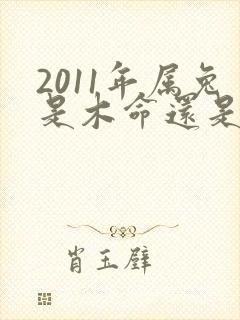 2011年属兔
是木命還是
肖玉璧